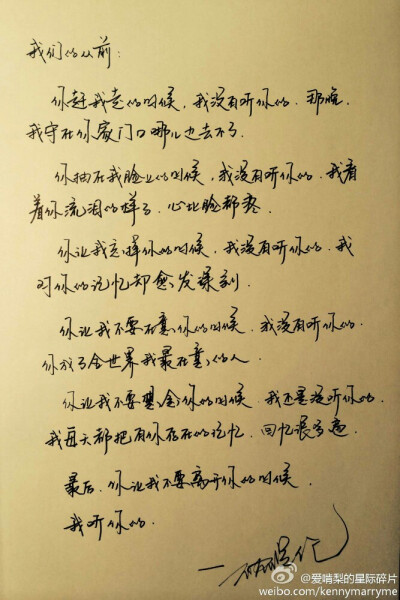 我们的以前：
你赶我走的时候，我没有听你的。那晚，
我守在你家门口哪儿也去不了。
你抽在我脸上的时候，我没有听你的。我看
着你流泪的样子，心比脸都疼。
你让我忘掉你的时候，我没有听你的。我
对你的记忆却愈发深刻。
你让我不要在意你的时候，我没有听你的。
你成了全世界我最在意的人。
你让我不要你的时候，我还是没听你的。
我每天都把有你存在的记忆，回忆很多遍。
最后，你让我不要离开你的时候，
我听你的。
@爱啃梨的星际碎片
weibo.com/kennymarryme